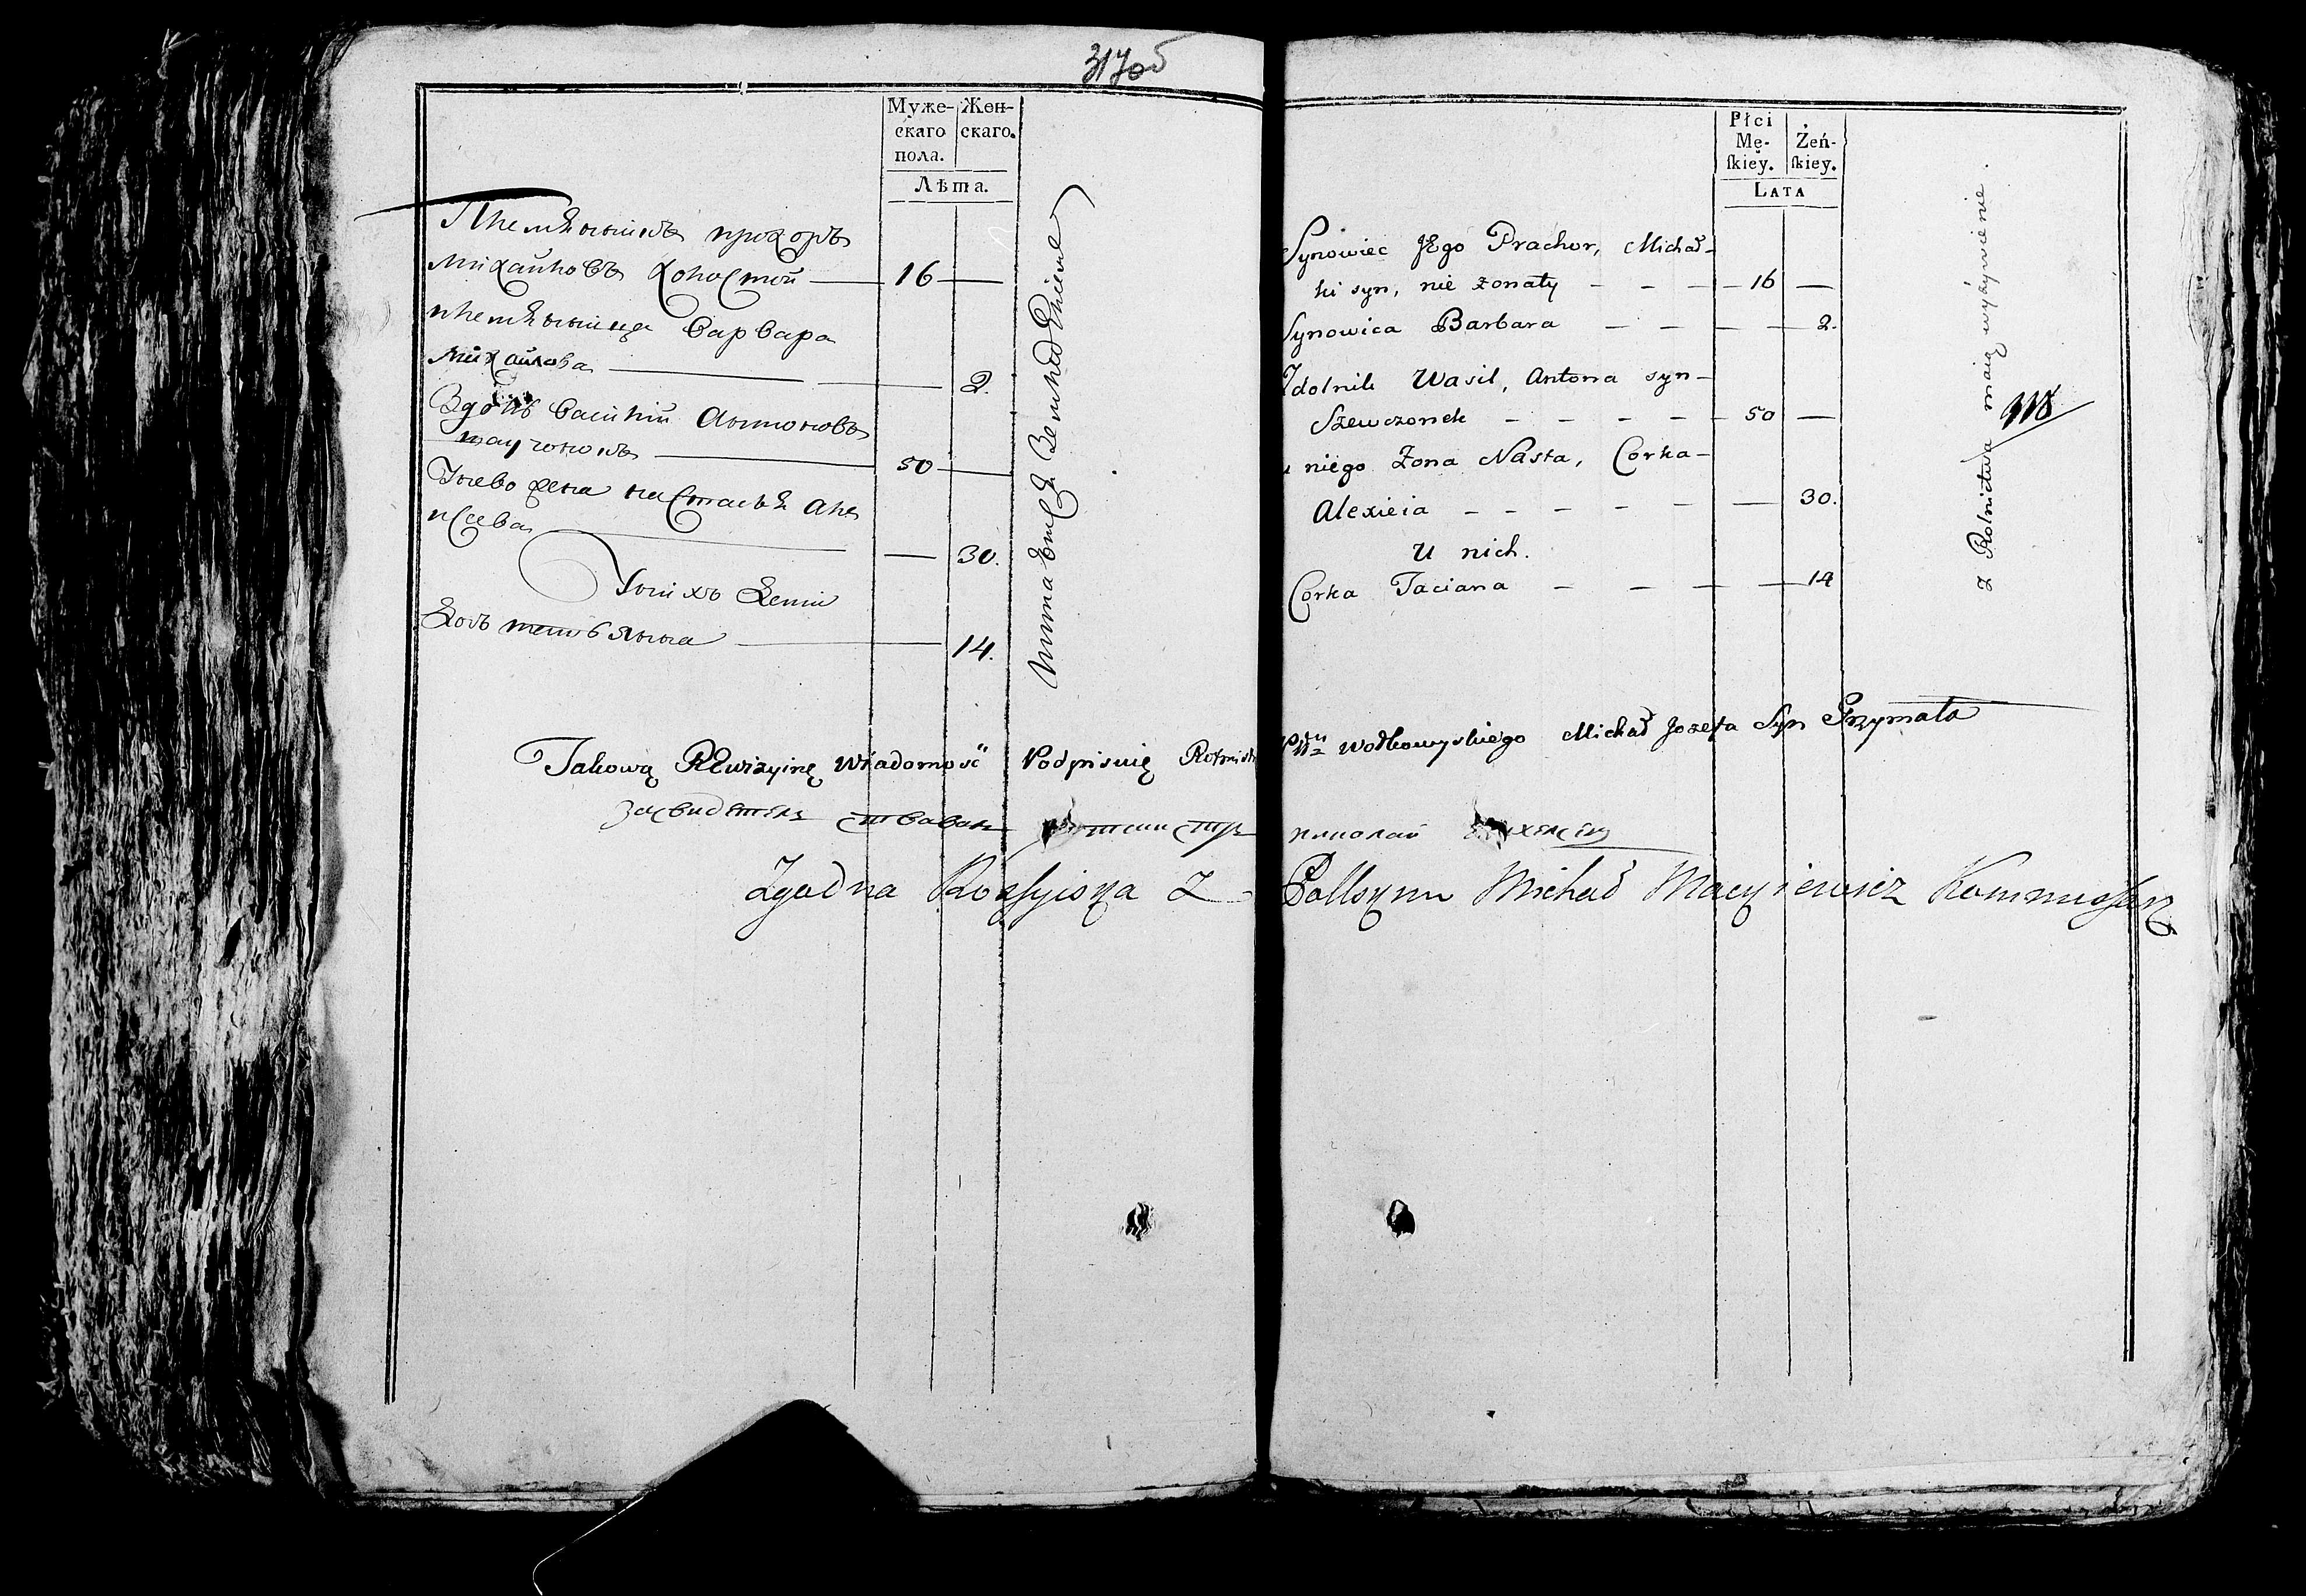 317об
Муже- Жен-
скаго скаго.
пола.
Лѣта.
Племянникъ прохоръ
михайловъ холостой — 16 —
племянница варвара
михайлова — 2.
василий Антоновъ
— 50 —
Унево жена настасья але
ксеева — 30.
Унихъ дети
дочь татьянна — 14.
Питаются Земледелиемъ
Płci
Mę- Żeń-
skiey. skiey.
LATA
Synowiec JEgo Prachor, Michał-
ki syn, nie żonaty - - - 16 —
Synowica Barbara - - - 2.
Zdolnik Wasil, Antona syn-
Szewczonek - - - - - 50 —
u niego Żona Nasta, Corka-
Alexieia - - - - - 30.
U nich.
Corka Taciana - - - 14
z Rolnictwa maią wyżywienie.
Takową REwizyiną wiadomość Podpisuię Rotmistrz Pttu Wołkowyskiego Michał Jozefa Syn Przymała
засвидетель ствовалъ николай
Zgodna Rossyiska Z Pollskym Michał Macyiewicz Kommissarz